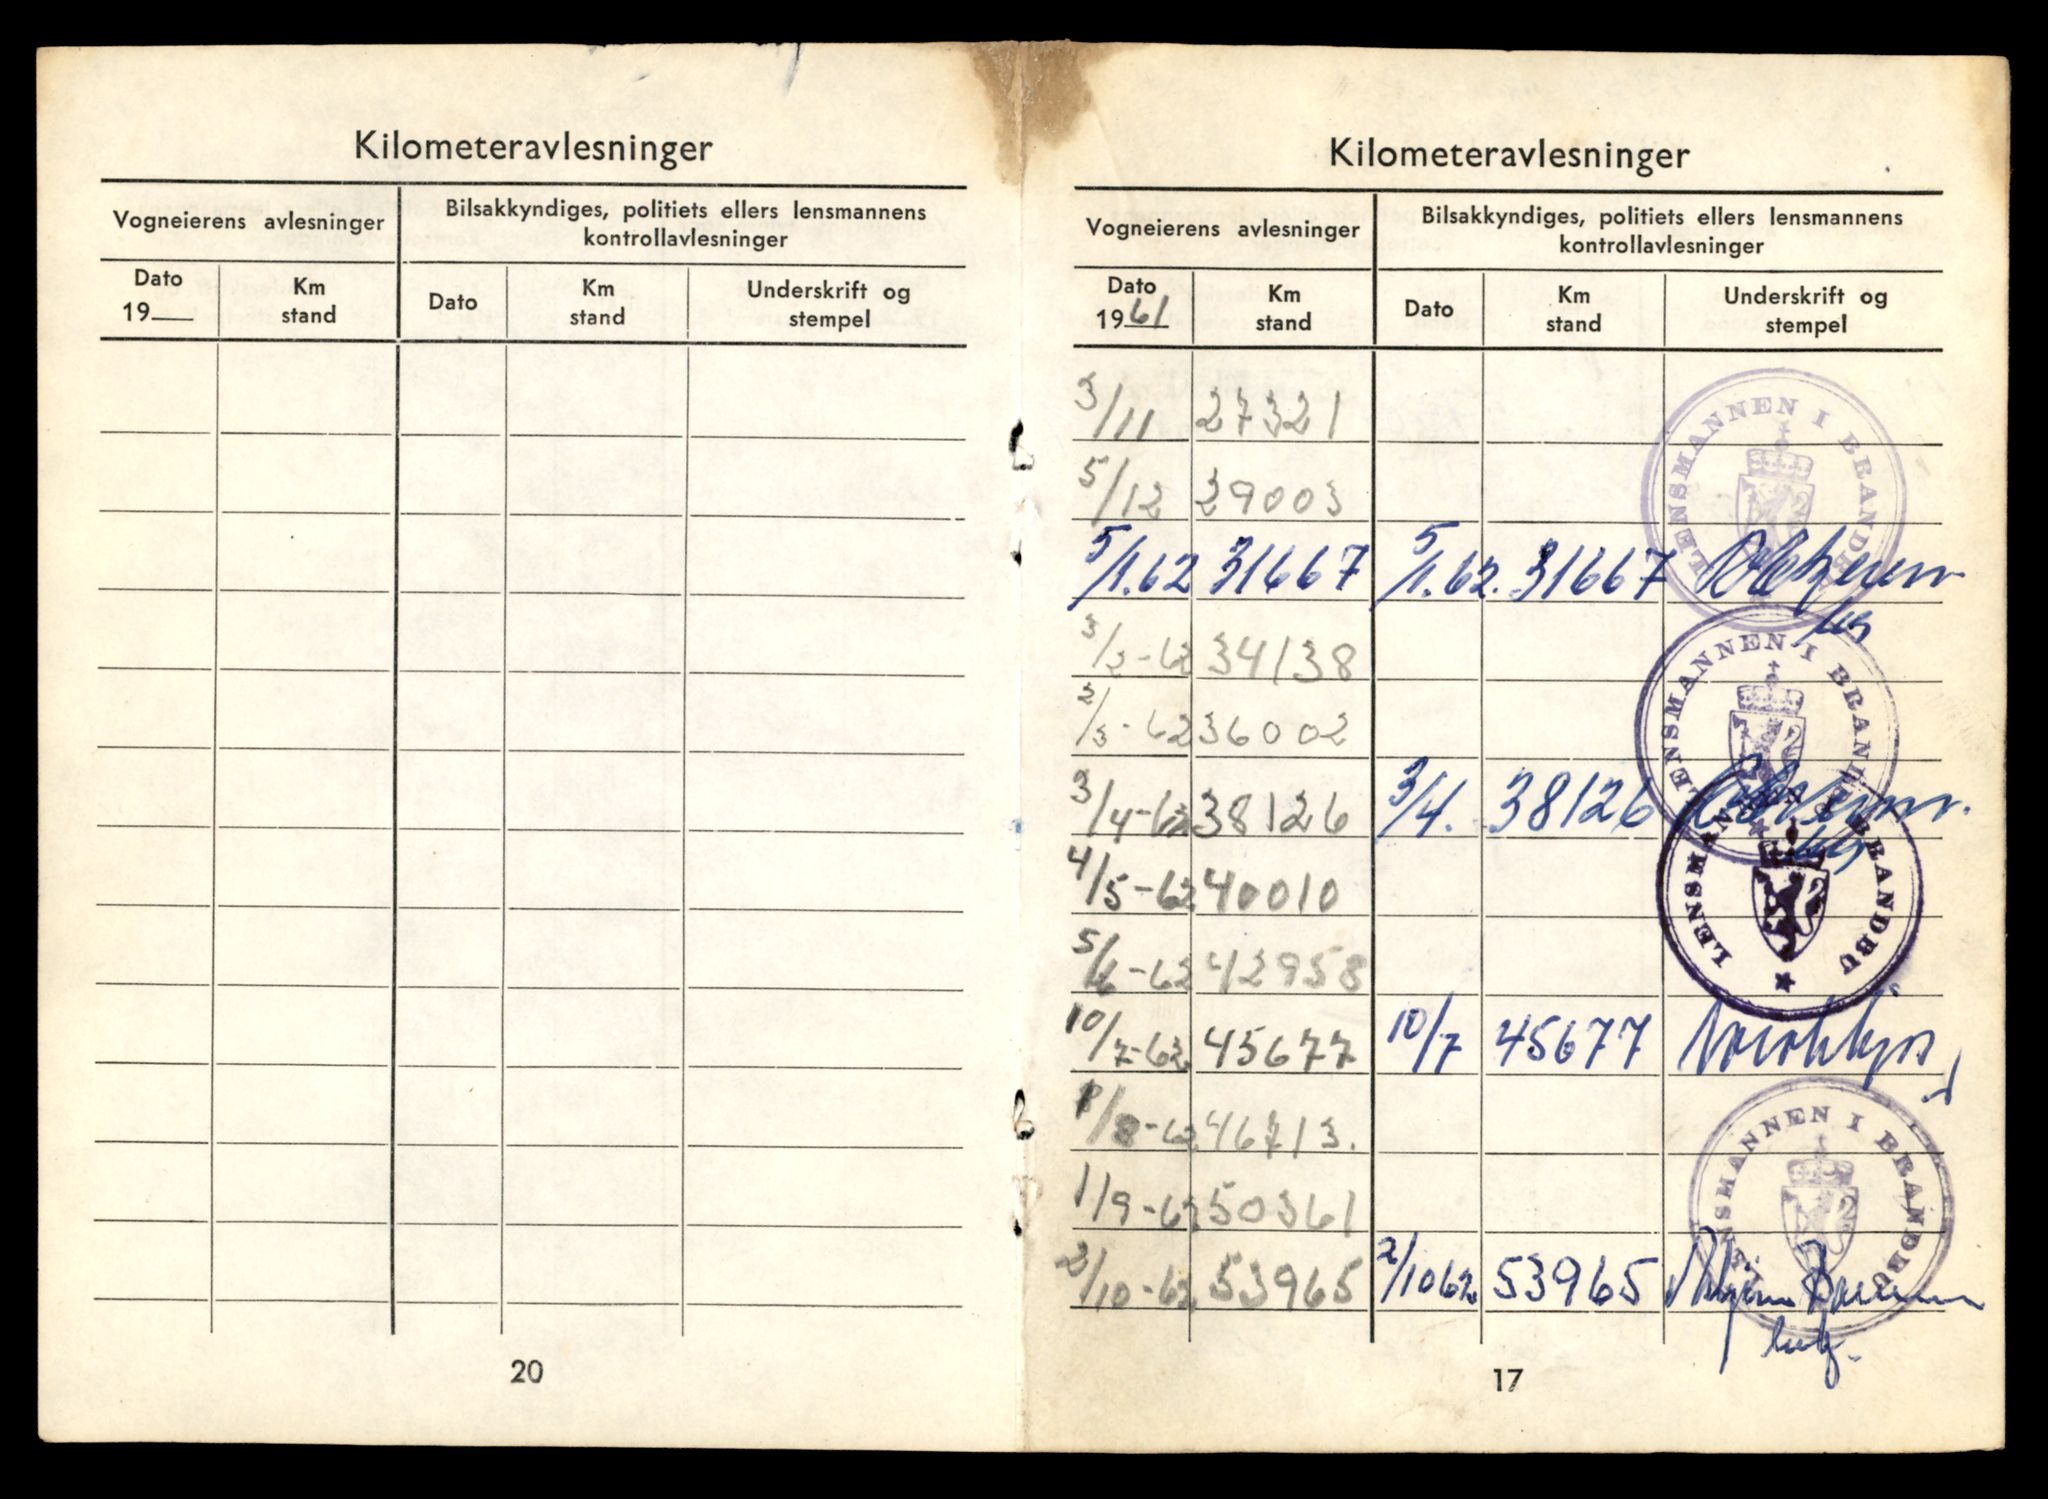 Kilometeravlesninger
Vogneierens avlesninger
Bilsakkyndiges, politiets ellers lensmannens
kontrollavlesninger
Dato
19
Km
stand
Dato
Km
stand
Underskrift og
stempel
20
Kilometeravlesninger
Vogneierens avlesninger
Bilsakkyndiges, politiets ellers lensmannens
kontrollavlesninger
Dato
1961
Km
stand
Dato
Km
stand
Underskrift og
stempel
3/11 27321
5/12 29003
5/1.62 31667 5/1.62. 31667
3/2-62 34138
2/3-62 36002
3/4-62 38126 3/4. 38126
4/5-62 40010
5/6-62 42958
10/7-62 45677 10/7 45677
1/8-62 46713.
1/9-62 50361
2/10-62 53965 2/10 62 53965
LENSMANNEN I BRANDBU
LENSMANNEN I BRANDBU
LENSMANNEN I BRANDBU
LENSMANNEN I BRANDBU
17